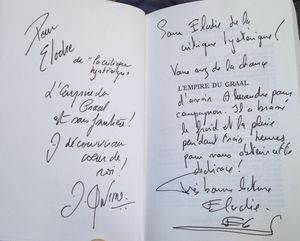 Pour
Elodie
de "la critique
hystérique"
L'Empire du
Graal
est sans frontières !
A découvrir au
coeur de
soi !
Pour Elodie de la
critique hystérique !
Vous avez de la chance
L'EMPIRE DU GRAAL
d'avoir Alexandre pour
compagnon. Il a bravé
le froid et la pluie
pendant trois heures
pour vous obtenir cette
dédicace !
Très bonne lecture
Elodie.